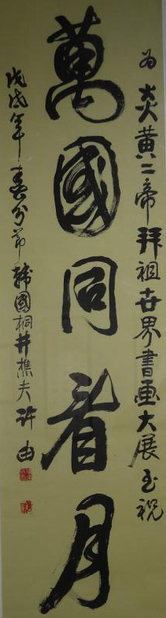 为炎黄二帝拜祖世界書画大展玉祝
萬國同看月
戊戌年春分節韓國桐井樵夫許由